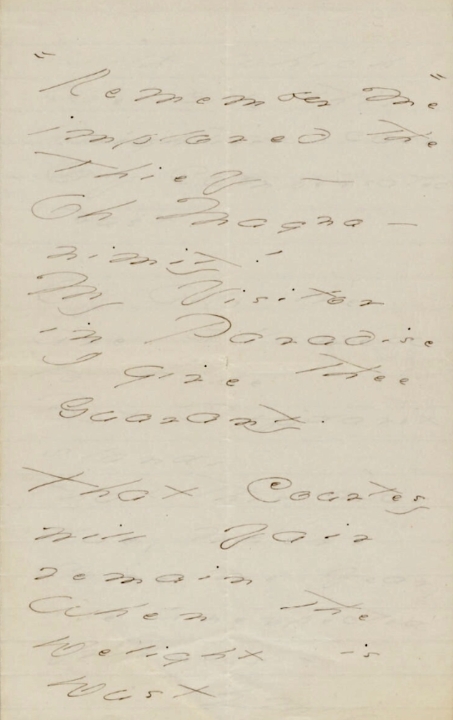 "Remember me"
implored the
Thief -
Oh Magna -
nimity!
My Visitor
in Paradise
I give thee
Guaranty.
That Courtesy
will fair
remain
When the
Delight is
Dust